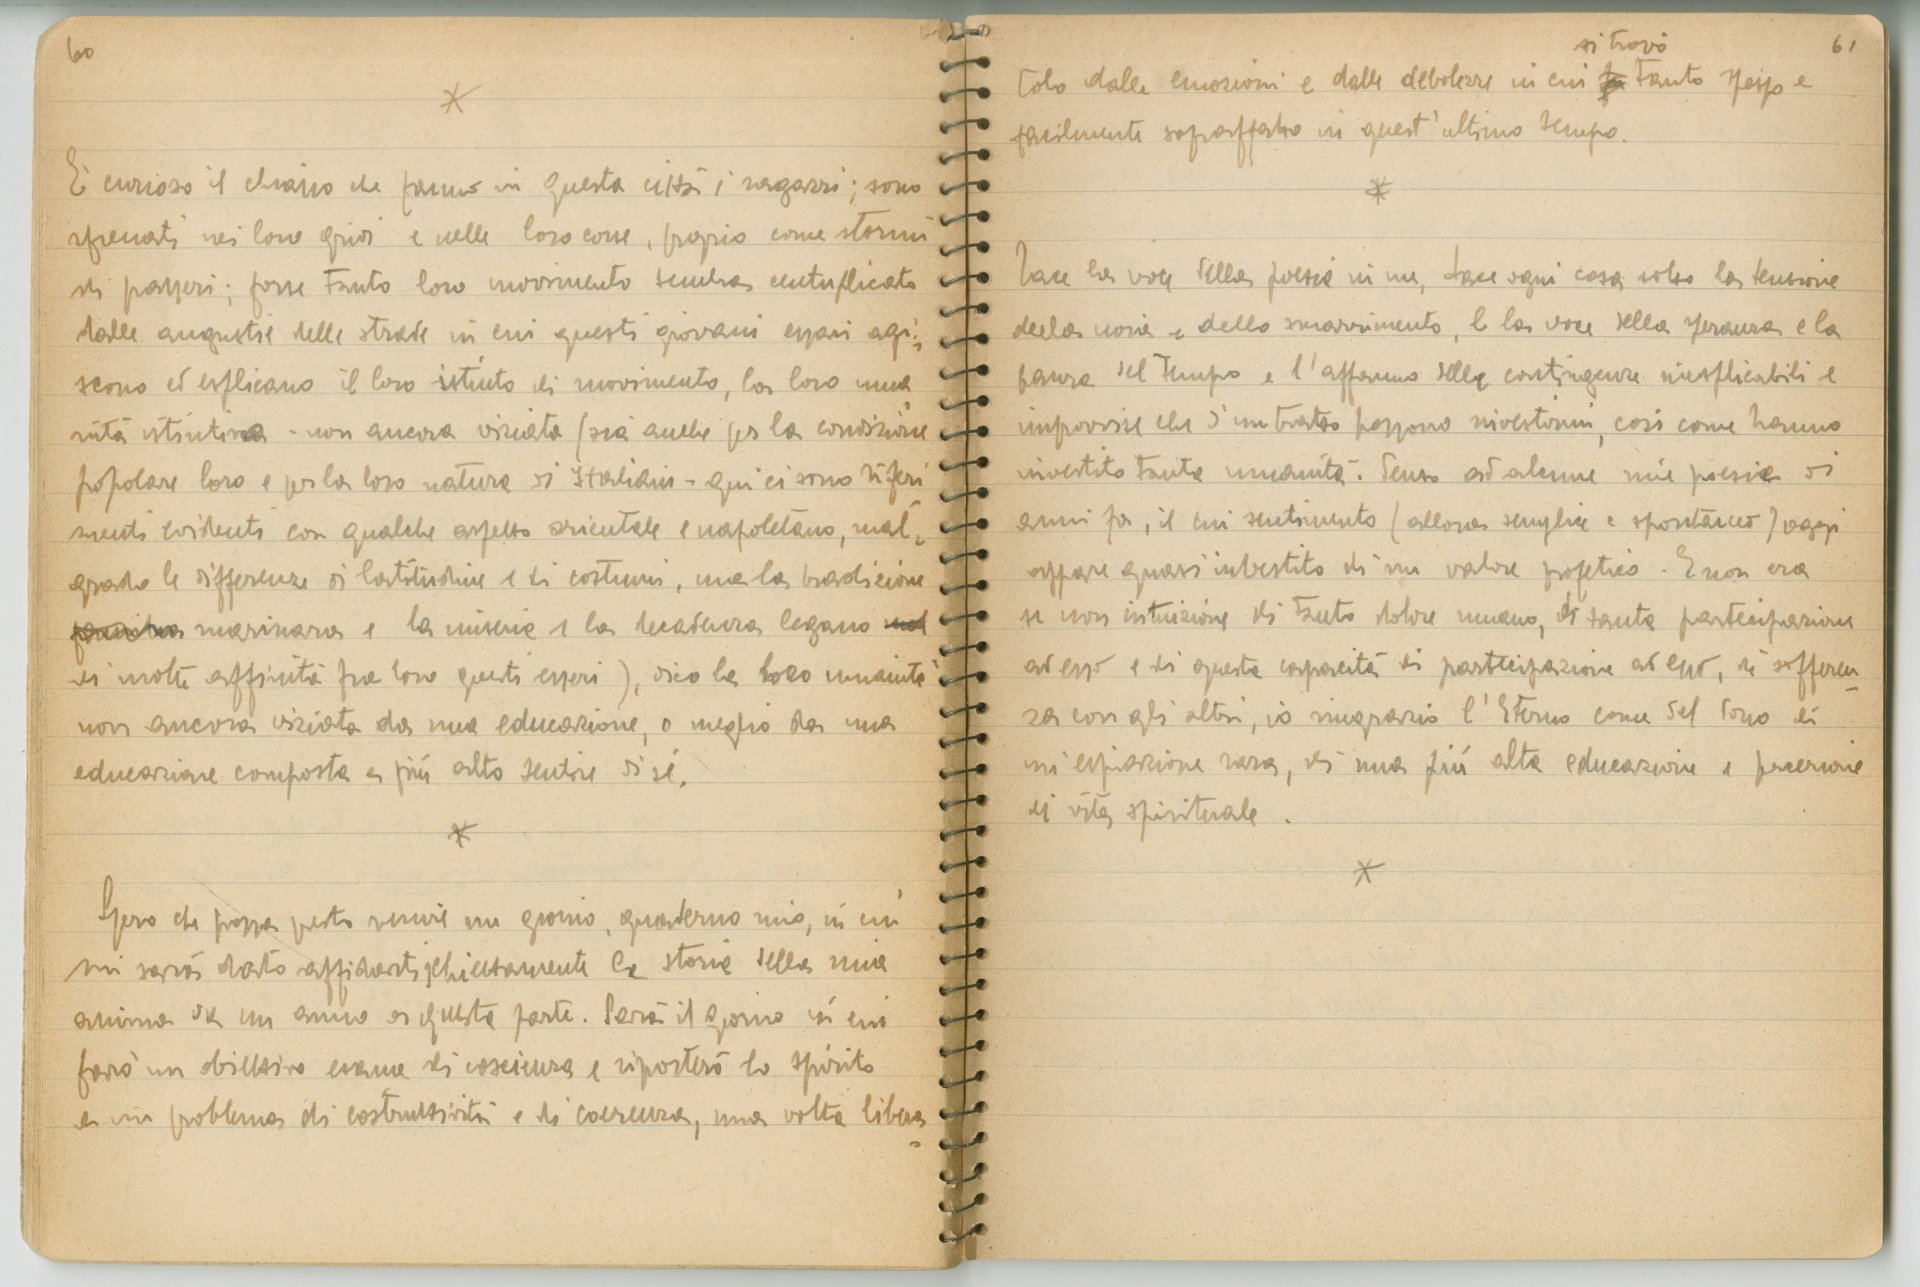 60
È curioso il chiasso che fanno in questa città i ragazzi; sono
sfrenati nei loro gridi e nelle loro corse, proprio come stormi
di passeri; forse tanto loro movimento sembra centuplicato
dalle angustie delle strade in cui questi giovani esseri agi-
scono ed esplicano il loro istinto di movimento, la loro uma
nità istintiva - non ancora viziata (sia anche per la condizione
popolare loro e per la loro natura di Italiani - qui ci sono riferi
menti evidenti con qualche aspetto orientale e napoletano, mal-
grado le differenze di latitudine e di costumi, ma la tradizione
marinara e la miseria e la decadenza legano
di molte affinità fra loro questi esseri), dico la loro umanità
non ancora viziata da una educazione, o meglio da una
educazione composta a più alto sentire di sé.
Spero che possa presto venire un giorno, quaderno mio, in cui
mi sarà dato affidarti schiettamente la storia della mia
anima da un anno a questa parte. Sarà il giorno in cui
farò un obiettivo esame di coscienza e riporterò lo spirito
a un problema di costruttività e di coerenza, una volta libera-
61
si trovò
tolo dalle emozioni e dalle debolezze in cui tanto spesso e
facilmente sopraffatto in quest'ultimo tempo.
Tace la voce della poesia in me, tace ogni cosa sotto la tensione
della noia e dello smarrimento, e la voce della speranza e la
paura del tempo e l'affanno delle contingenze inesplicabili e
improvvise che d'un tratto possono investirmi, così come hanno
investito tanta umanità. Penso ad alcune mie poesie di
anni fa, il cui sentimento (allora semplice e spontaneo) oggi
appare quasi investito di un valore profetico. E non era
se non intuizione di tanto dolore umano, di tanta partecipazione
ad esso e di questa capacità di partecipazione ad esso, di sofferen-
za con gli altri, io ringrazio l'Eterno come del dono di
un'espiazione rara, di una più alta educazione e precisione
di vita spirituale.